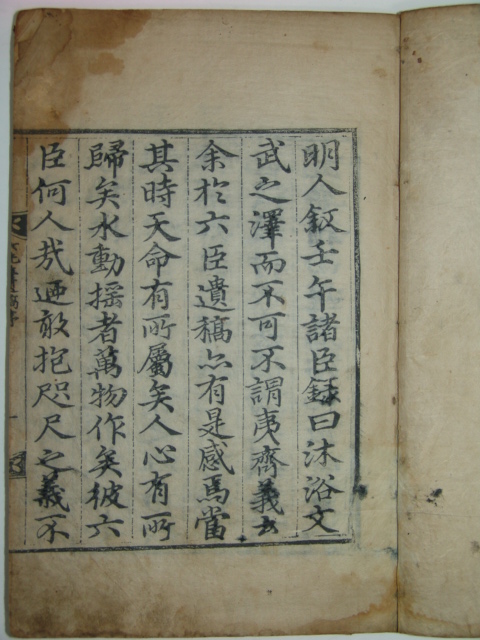 明人敘壬午諸臣錄曰沐浴文
武之澤而不可不謂夷齊義士
余於六臣遺稿亦有是感焉當
其時天命有所屬矣人心有所
歸矣水動搖者萬物作矣彼六
臣何人哉迺敢抱咫尺之義不